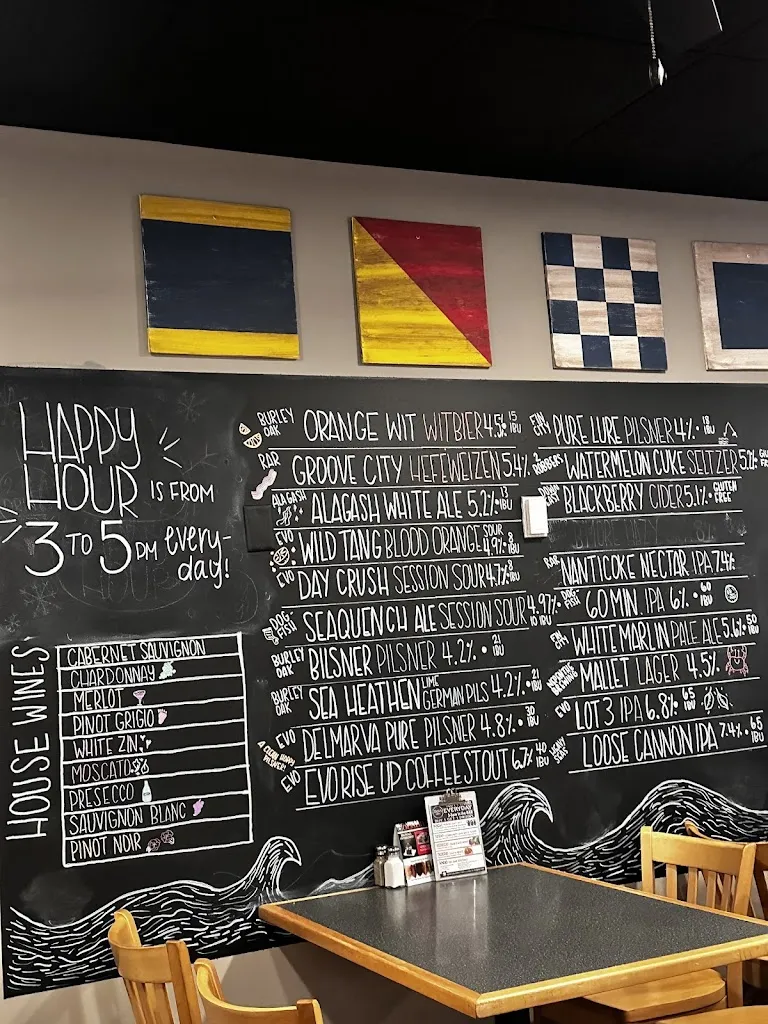 HAPPY
HOUR IS FROM
3 TO 5 PM every-
day!
HOUSE WINES
CABERNET SAUVIGNON
CHARDONNAY
MERLOT
PINOT GRIGIO
WHITE ZIN
MOSCATO
PRESECCO
SAUVIGNON BLANC
PINOT NOIR
BURLEY OAK ORANGE WIT WITBIER 4.5% 15 IBU
RAR GROOVE CITY HEFEWEIZEN 5.4%
ALAGASH ALAGASH WHITE ALE 5.2% 13 IBU
EVO WILD TANG BLOOD ORANGE SOUR 4.9% 8 IBU
EVO DAY CRUSH SESSION SOUR 4.7% 8 IBU
DOG FISH SEAQUENCH ALE SESSION SOUR 4.9% 10 IBU
BURLEY OAK BILSNER PILSNER 4.2% • 21 IBU
BURLEY OAK SEA HEATHEN LIME GERMAN PILS 4.2% • 21 IBU
EVO DELMARVA PURE PILSNER 4.8% • 30 IBU
A CLEAN HAPPY PILSNER!
EVO EVO RISE UP COFFEE STOUT 6.7% 40 IBU
FIN CITY PURE LURE PILSNER 4% • 18 IBU
2 ROBBERS WATERMELON CUKE SELTZER 5.2%
BLACKBERRY CIDER 5.1% • GLUTEN FREE
RAR NANTICOKE NECTAR IPA 7.4%
DOG FISH 60 MIN. IPA 6% • 60 IBU
FIN CITY WHITE MARLIN PALE ALE 5.6% 50 IBU
MALLET LAGER 4.5%
EVO LOT 3 IPA 6.8% 65 IBU
HEAVY SEAS LOOSE CANNON IPA 7.4% • 65 IBU
EVERYDAY